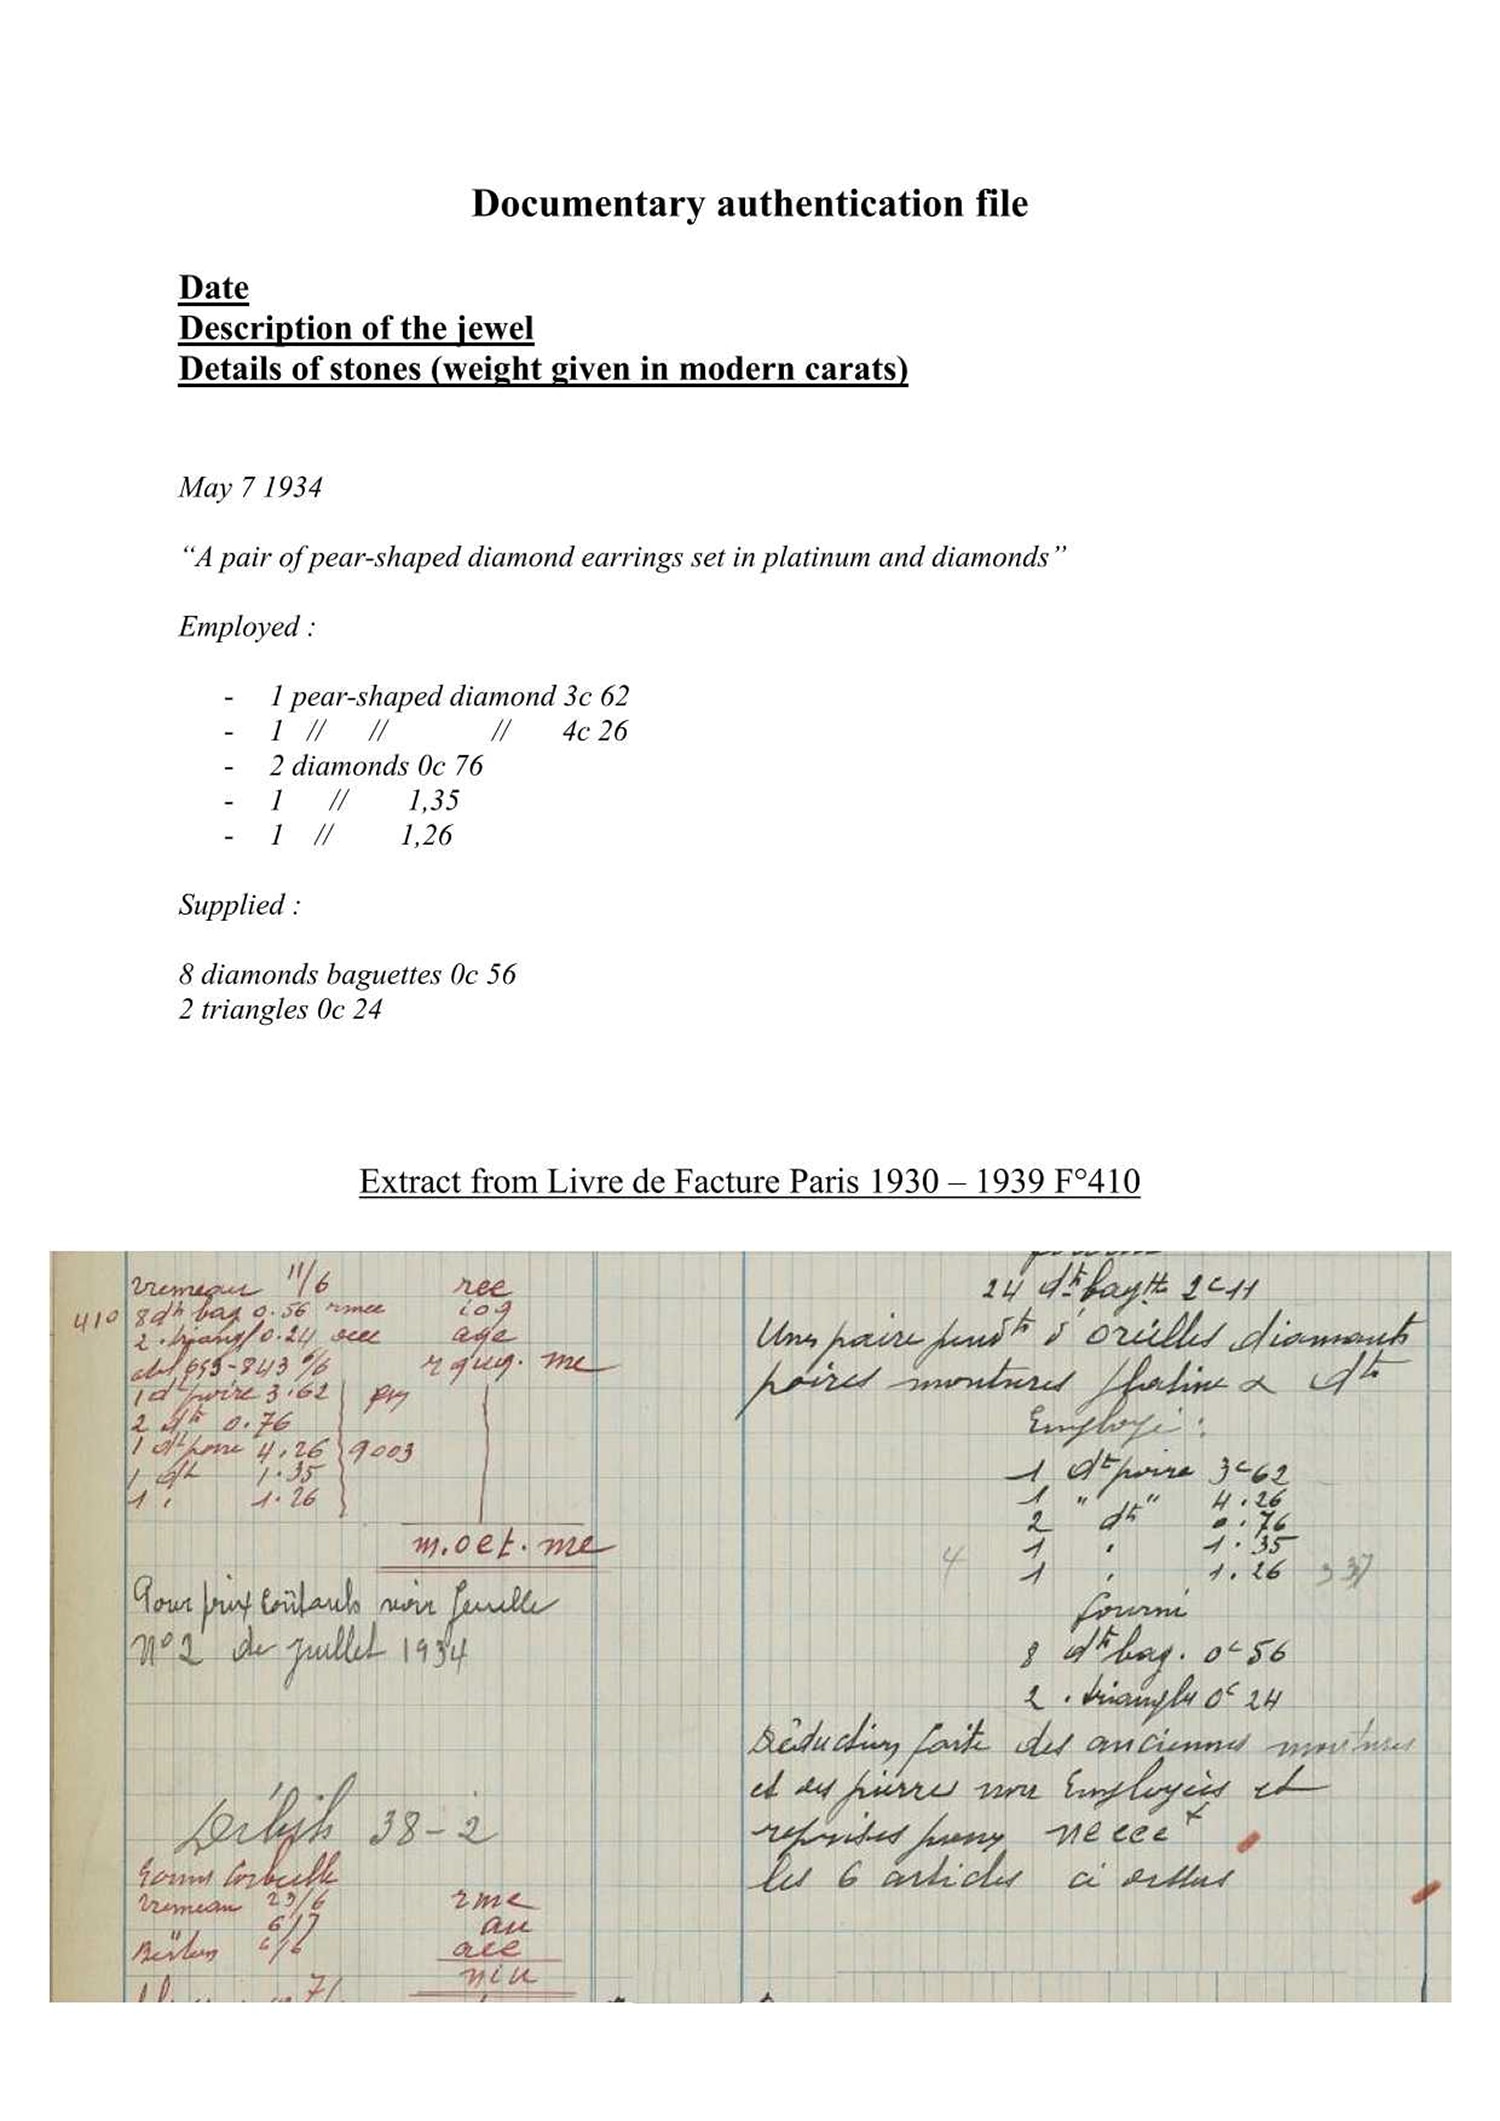 Documentary authentication file
Date
Description of the jewel
Details of stones (weight given in modern carats)
May 7 1934
“A pair of pear-shaped diamond earrings set in platinum and diamonds”
Employed :
- 1 pear-shaped diamond 3c 62
- 1 // // // 4c 26
- 2 diamonds 0c 76
- 1 // 1,35
- 1 // 1,26
Supplied :
8 diamonds baguettes 0c 56
2 triangles 0c 24
Extract from Livre de Facture Paris 1930 – 1939 F°410
Vremeau 11/6 ree
410 8 dts bag 0.56
2 . triangl 0.24 age
1 dt poire 3.62
2 dts 0.76
1 dt poire 4.26 9003
1 dt 1.35
1 1.26
m.oet.me
Pour prix coûtants voir feuille
N° 2 de juillet 1934
38-2
Vremeau 23/6 rme
6/7 au
6/6 aee
niu
24 dts bagtts 2c 11
Une paire pendts d'oreilles diamants
poires montures platine & dts
Employé :
1 dt poire 3c 62
1 " dt " 4.26
2 dts 0.76
1 1.35
4 1 1.26
fourni
8 dts bag. 0c 56
2 . triangles 0c 24
Déduction faite des anciennes montures
et des pierres non Employées et
reprises pour neeee
les 6 articles ci dessus